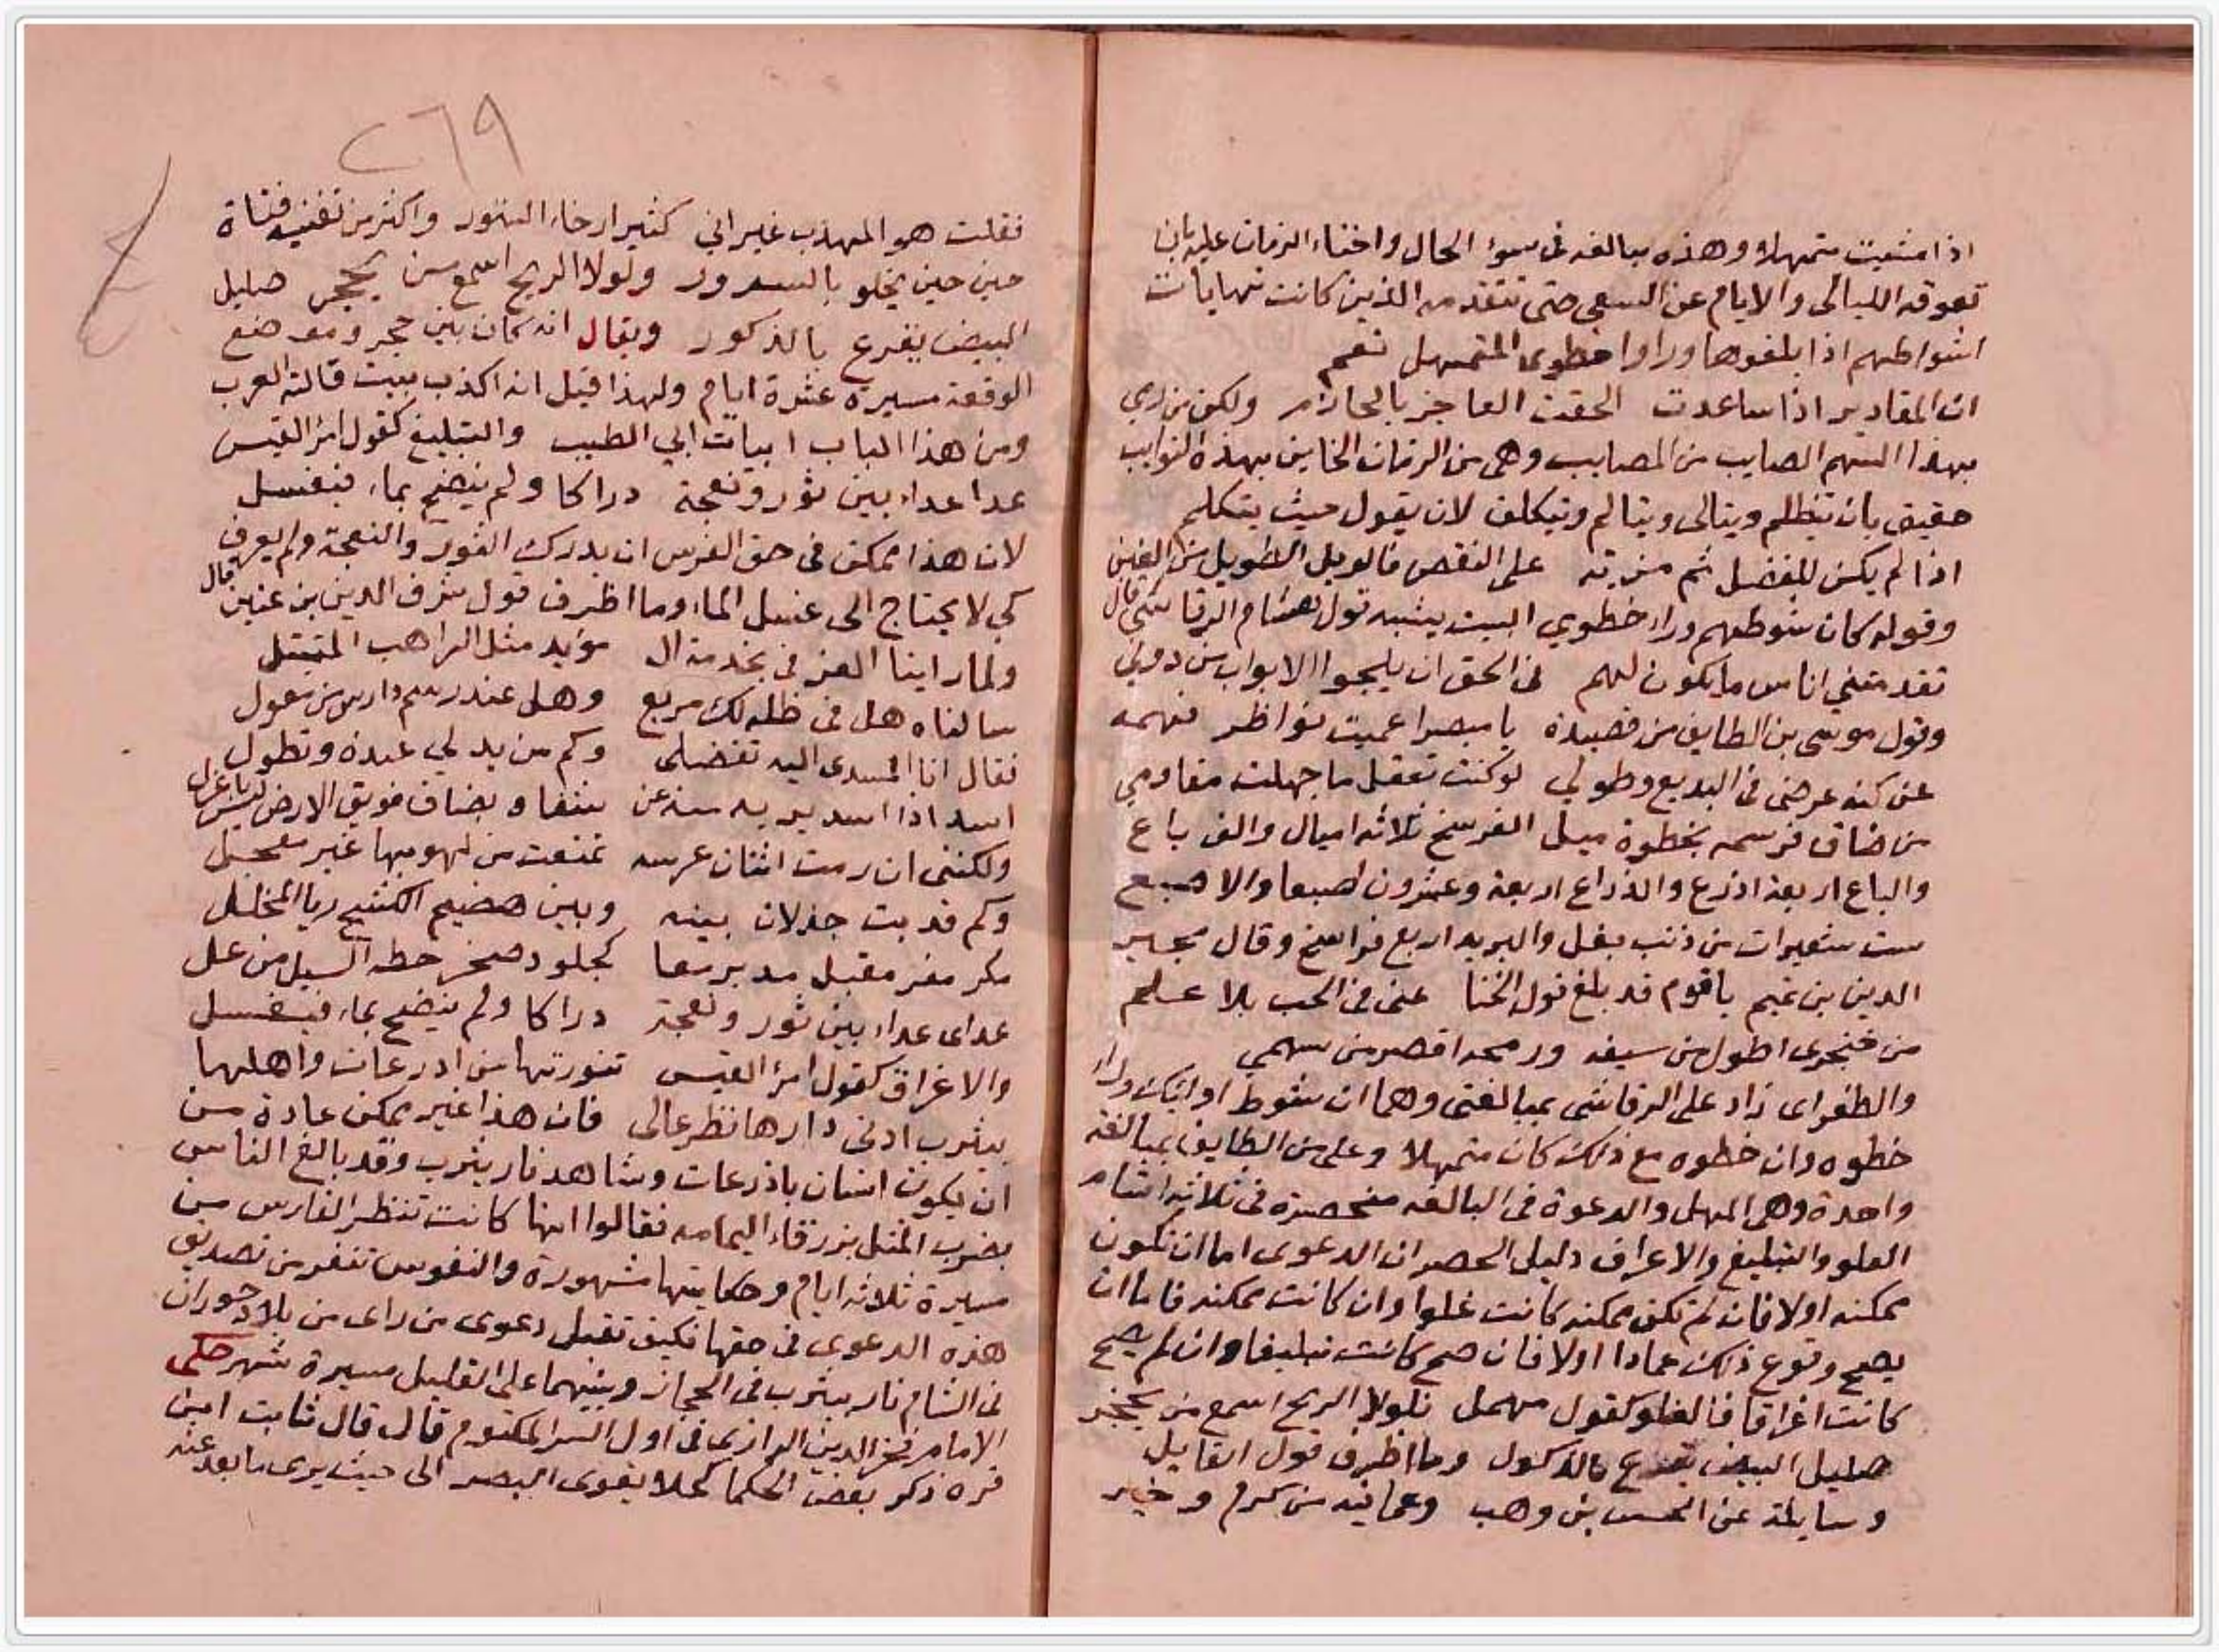 اذا مشيت متمهلا وهذه مبالغه فى سوء الحال واخناء الزمان عليه بان
تعوقه الليالى والايام عن السعى حتى تتقدمه الذين كانت نهايات
اشواطهم اذا بلغوها وراوا خطوى المتمهل نعم
ان المقادير اذا ساعدت الحقت العاجز بالحازم ولكن من رمي
بهذا السهم الصايب من المصايب وهى من الزمان الخاين بهذه النوايب
حقيق بان يتظلم ويتالى ويتالم ويتكلف لان يقول حيث يتكلم
اذا لم يكن للفضل ثم مزية على النقص فالويل الطويل من الغبن
وقوله كان شوطهم وراء خطوي البيت يشبه قول هشام الرقاشى قال
تقدمتني اناس ما يكون لهم فى الحق ان يلجوا الابواب من دوني
وقول موسى بن الطايف من قصيدة يا مبصرا عميت نواظر فهمه
عن كنه عرضى فى البديع وطولي لو كنت تعقل ما جهلت مقاومي
من ضاق فرسمه بخطوة ميل الفرسخ ثلاثه اميال والف باع
والباع اربعة اذرع والذراع اربعة وعشرون اصبعا والاصبع
ست شعيرات من ذنب بغل والبريد اربع فراسخ وقال مجير
الدين بن تميم يا قوم قد بلغ قول الخنا عنى فى الحب بلا علم
من خنجرى اطول من سيفه ورمحه اقصر من سهمي
والطغراى زاد على الرقاشى بمبالغتى وهما ان شوط اوليك وراء
خطوه وان خطوه مع ذلك كان متمهلا وعلى من الطايف بمبالغه
واحدة وهى المهل والدعوة فى البالغه منحصرة فى ثلاثه اقسام
الغلو والتبليغ والاغراق دليل الحصر ان الدعوى اما ان تكون
ممكنه اولا فان لم تكن ممكنه كانت غلوا وان كانت ممكنه فاما ان
يصح وقوع ذلك عمادا اولا فان صح كانت تبليغا وان لم يصح
كانت اغراقا فالغلو كقول مهمل فلولا الريح اسمع من بحجر
صليل البيض تقرع بالذكول وما اظرف قول القايل
وسايلة عن الحسن بن وهب وعما فيه من كرم وخير
٢٦٩
فقلت هو المهذب غير اني كثير ارخاء الستور واكثر من تغنيه فتاة
حين حين يخلو بالسدور ولولا الريح اسمع من بحجر صليل
البيض يقرع بالذكور ويقال انه كان بين حجر وموضع
الوقعة مسيرة عشرة ايام ولهذا قيل انه اكذب بيت قالته العرب
ومن هذا الباب ابيات ابي الطيب والتبليغ كقول امرؤ القيس
عدا عداء بين ثور ونعجة دراكا ولم ينضح بماء فيغسل
لان هذا ممكن فى حق الفرس ان يدرك الثور والنعجة ولم يعرق
كي لا يحتاج الى غسيل الماء وما اظرف قول شرف الدين بن عنين قال
ولما راينا العز فى بخدمة ال مؤيد مثل الراهب المتبتل
سالناه هل فى ظله لك مربع وهل عند رسم دارس من معول
فقال انا المسدى اليه تفضلى وكم من يد لي عنده وتطول
اسد اذا اسديد به سنه عن شفاه بضاف فويق الارض ليس باعزل
ولكننى ان رمت اتيان عرسه تمتعت من لهو بها غير معجل
وكم قد بت جذلان بينه وبين هضيم الكشح ريا المخلخل
مكر مفر مقبل مدبر معا كجلود صخر حطه السيل من عل
عداى عداء بين ثور ونعجة دراكا ولم ينضح بماء فيغسل
والاغراق كقول امرؤ القيس تنورتها من ادرعات واهلها
بيثرب ادنى دارها نظر عالى فان هذا غير ممكن عادة من
ان يكون انسان باذرعات وشاهد نار يثرب وقد بالغ الناس
بضرب المثل بزرقاء اليمامه فقالوا انها كانت تنظر الفارس من
مسيرة ثلاثه ايام وحكايتها مشهورة والنفوس تنفر من تصديق
هذه الدعوى فى حقها فكيف تقبل دعوى من راى من بلاد حوران
فى الشام نار بيثرب فى الحجاز وبينهما على القليل مسيرة شهر حكى
الامام فخر الدين الرازى فى اول السر المكتوم قال قال ثابت ابن
قره ذكر بعض الحكما كحلا يقوى البصر الى حيث يرى ما بعد عنه